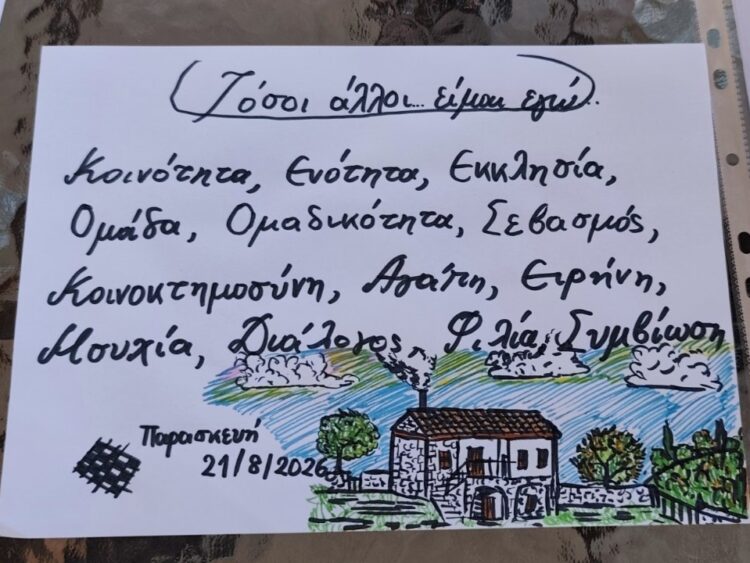 Τόσοι άλλοι... είμαι εγώ..
Κοινότητα, Ενότητα, Εκκλησία,
Ομάδα, Ομαδικότητα, Σεβασμός,
Κοινοκτημοσύνη, Αγάπη, Ειρήνη,
Μσυχία, Διάλογος, Φιλία, Συμβίωση
Παρασκευή
21/8/2026